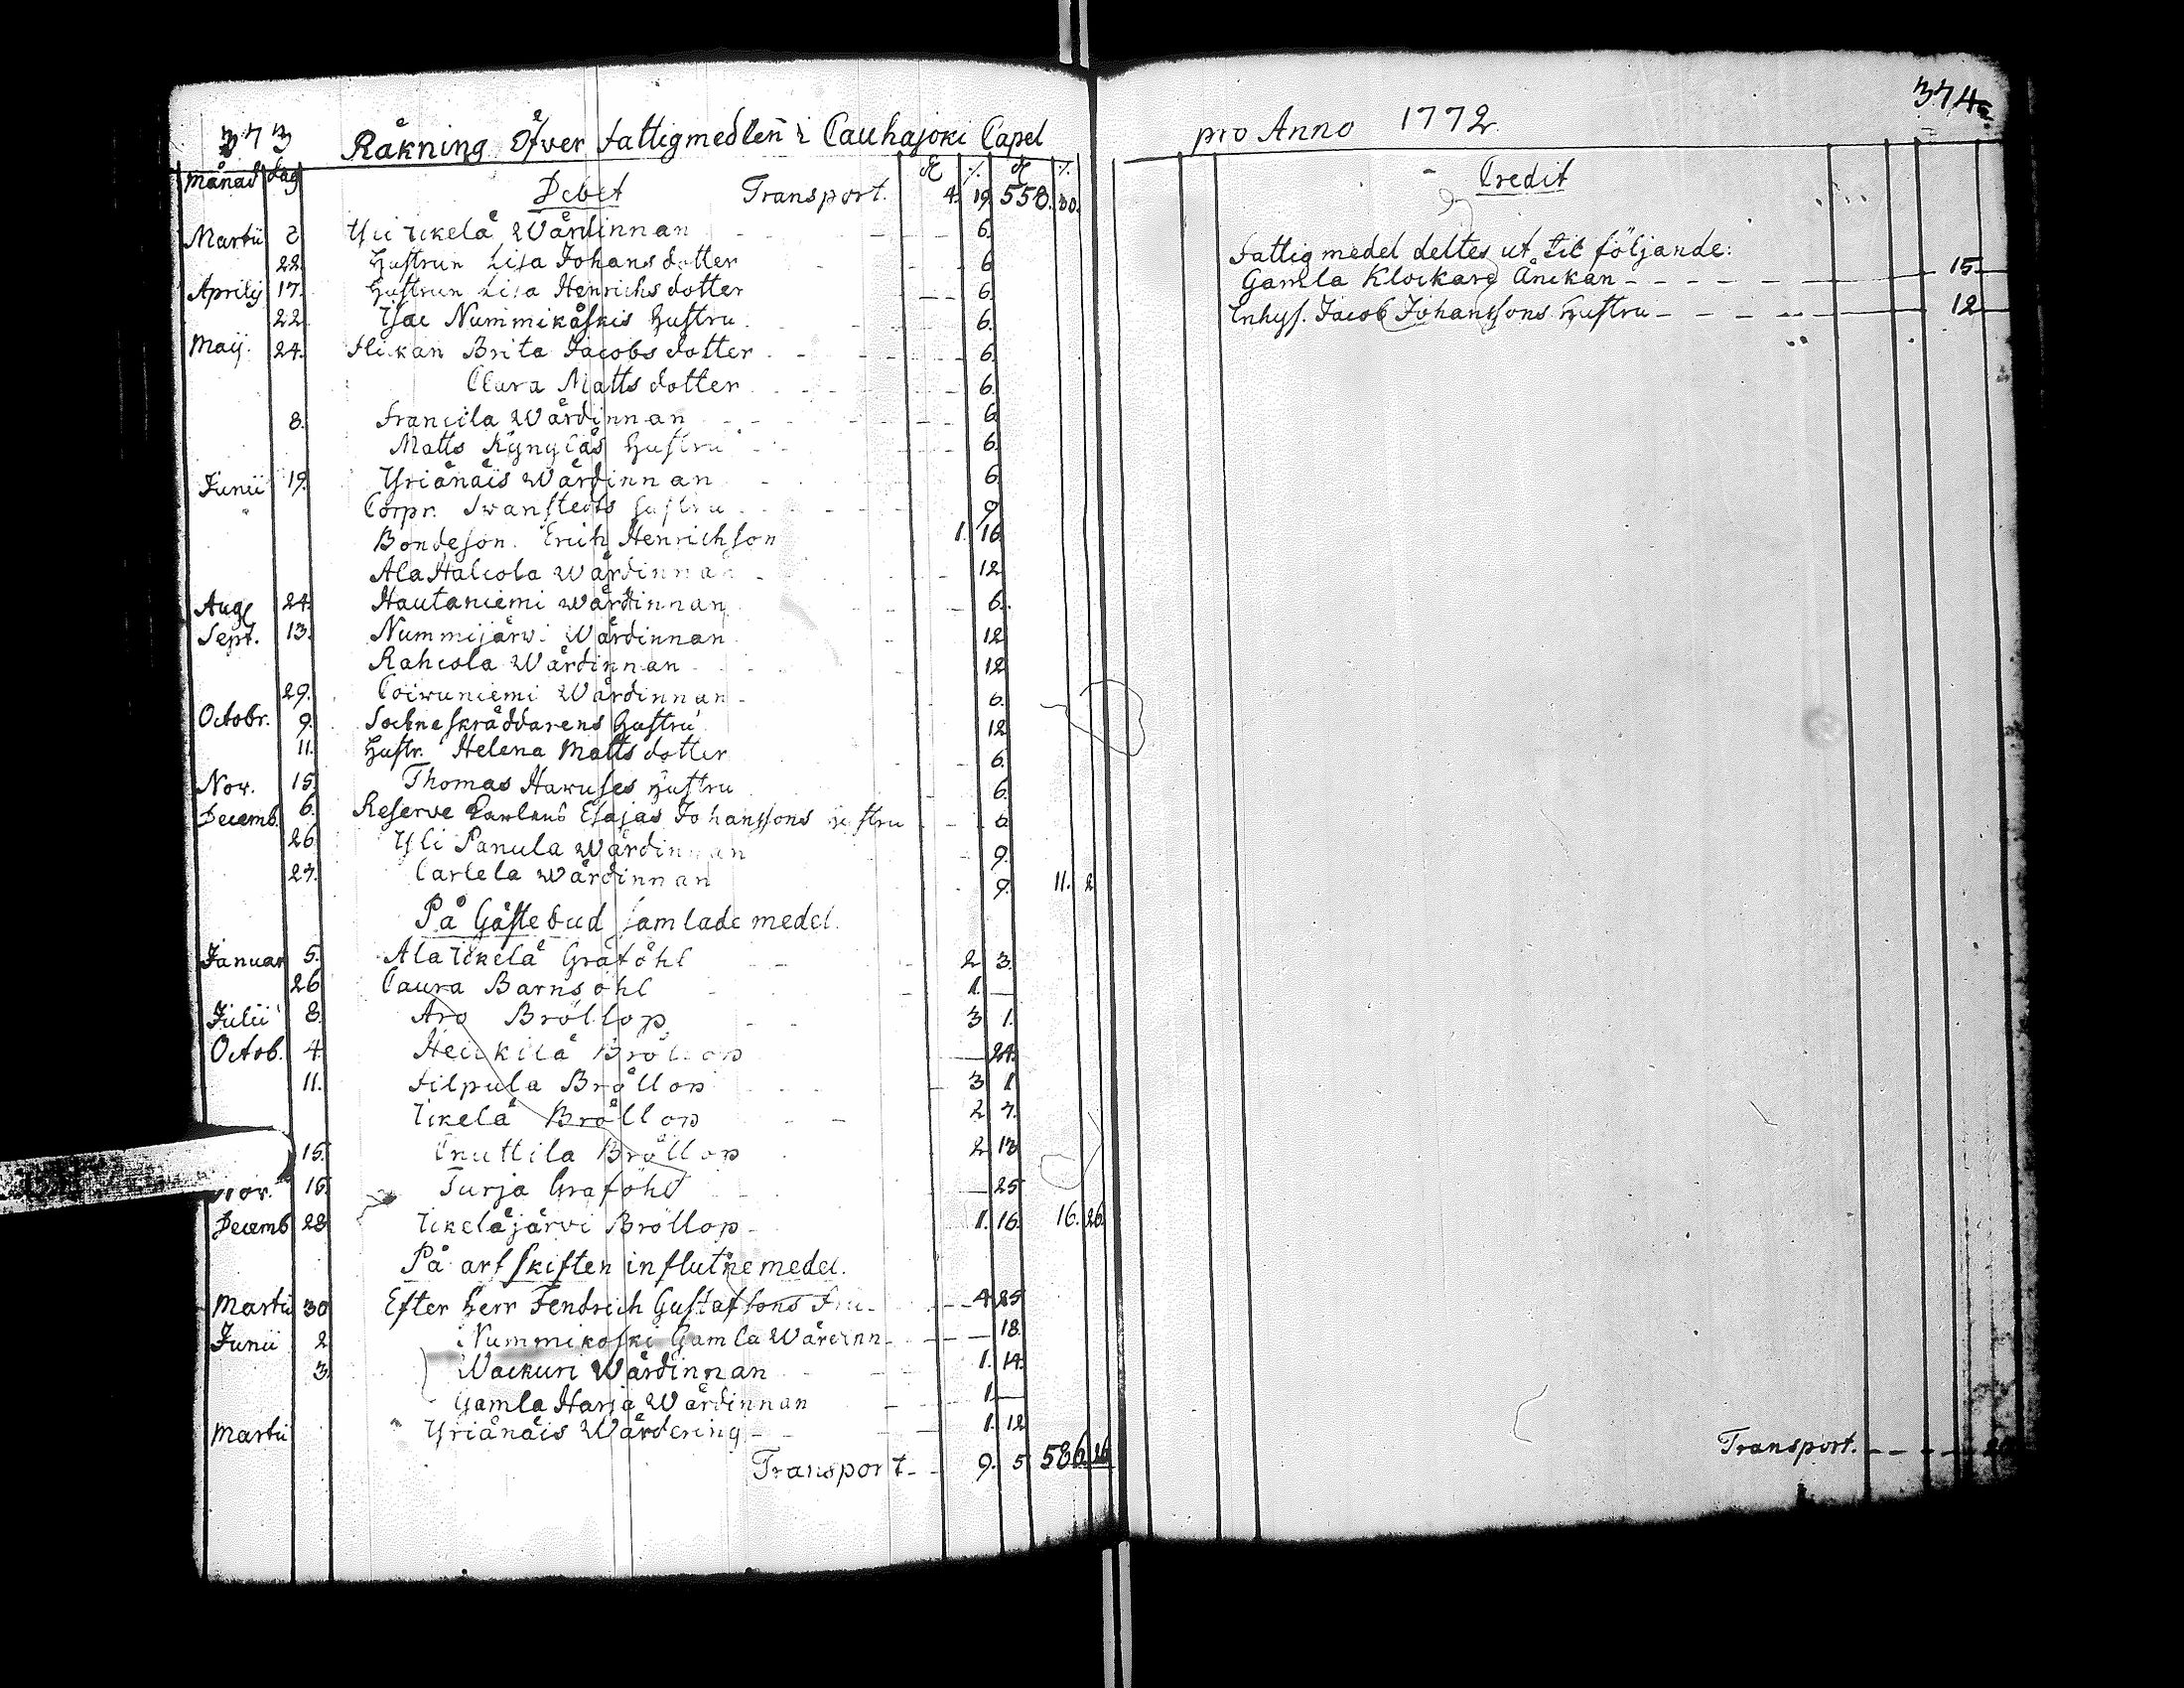 373 Råkning Öfver fattigmedlen i Cauhajoki Capel
Månad dag Debet Transport. 4. 19. 558. 30.
Martii 2 Yli Ikelä Wärdinnan 6.
22. Hustrun Lisa Johans dotter 6
Aprilij 17. Hustrun Lisa Henrichs dotter 6.
22. Isac Nummikåskis Hustru 6.
Maij. 24. Flickan Brita Jacobs dotter 6.
Clara Matts dotter 6.
8. Francila Wärdinnan 6.
Matts Hustru 6.
Junii 19. Yriänäis Wärdinnan 6
Corpr. Swanstedts Hustru 9
Bondeson. Erich Henrichson 1. 16.
Ala Halcola Wärdinnan 12
Aug 24. Hautaniemi Wärdinnan 6.
Sept. 13. Nummijärwi Wärdinnan 12
Rahcola Wärdinnan 12
29. Coiwuniemi Wärdinnan 6.
Octobr. 9. Sockneskräddarens Hustru 12
11. Hustr. Helena Matts dotter 6.
Nov. 15. Thomas Haruses Hustru 6.
Decemb. 6. Reserve Esajas Johanssons Hustru 6.
26. Yli Panula Wärdinnan 9.
27. Carlela Wärdinnan 9. 11. 2
På Gåstebud samlade medel.
Januar 5. Ala Ikelä Grafôhl 2 3.
26 Caura Barnsöhl 1. —
Julii 8. Aro Bröllop 3 1.
Octob. 4. Heickilä Bröllop — 24.
11. Filpula Bröllop 3 1
Ikelä Bröllop 2 7.
15. Cnuttila Bröllop 2 13
Nov. 15. Turja Grafôhl — 25
Decemb 28 Ikeläjärvi Bröllop 1. 16. 16. 26.
På arfskiften influtne medel.
Martii 30 Efter Herr Fendrich Gustafsons Fru 4 25
Junii 2 Nummikoski Gamla Wärdinn — 18.
3. Wackuri Wärdinnan 1. 14.
Gamla Harja Wärdinnan 1. —
Martii Yriänäis Wärdering 1. 12
Transport 9. 5 586. 26.
pro Anno 1772. 374
Credit
Fattigmedel deltes ut til följande:
Gamla Klockare Änckan 15.
Inhys. Jacob Johanssons Hustru 12
Transport.